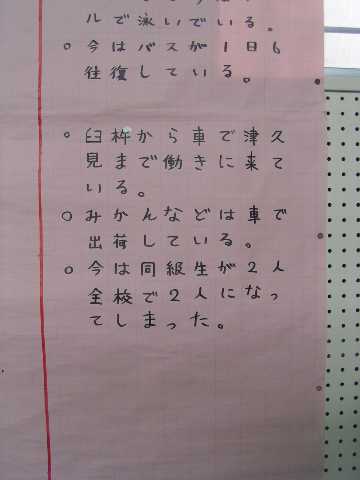 ルで泳いでいる。
○今はバスが1日6
往復している。
○臼杵から車で津久
見まで働きに来て
いる。
○みかんなどは車で
出荷している。
○今は同級生が2人
全校で2人になっ
てしまった。